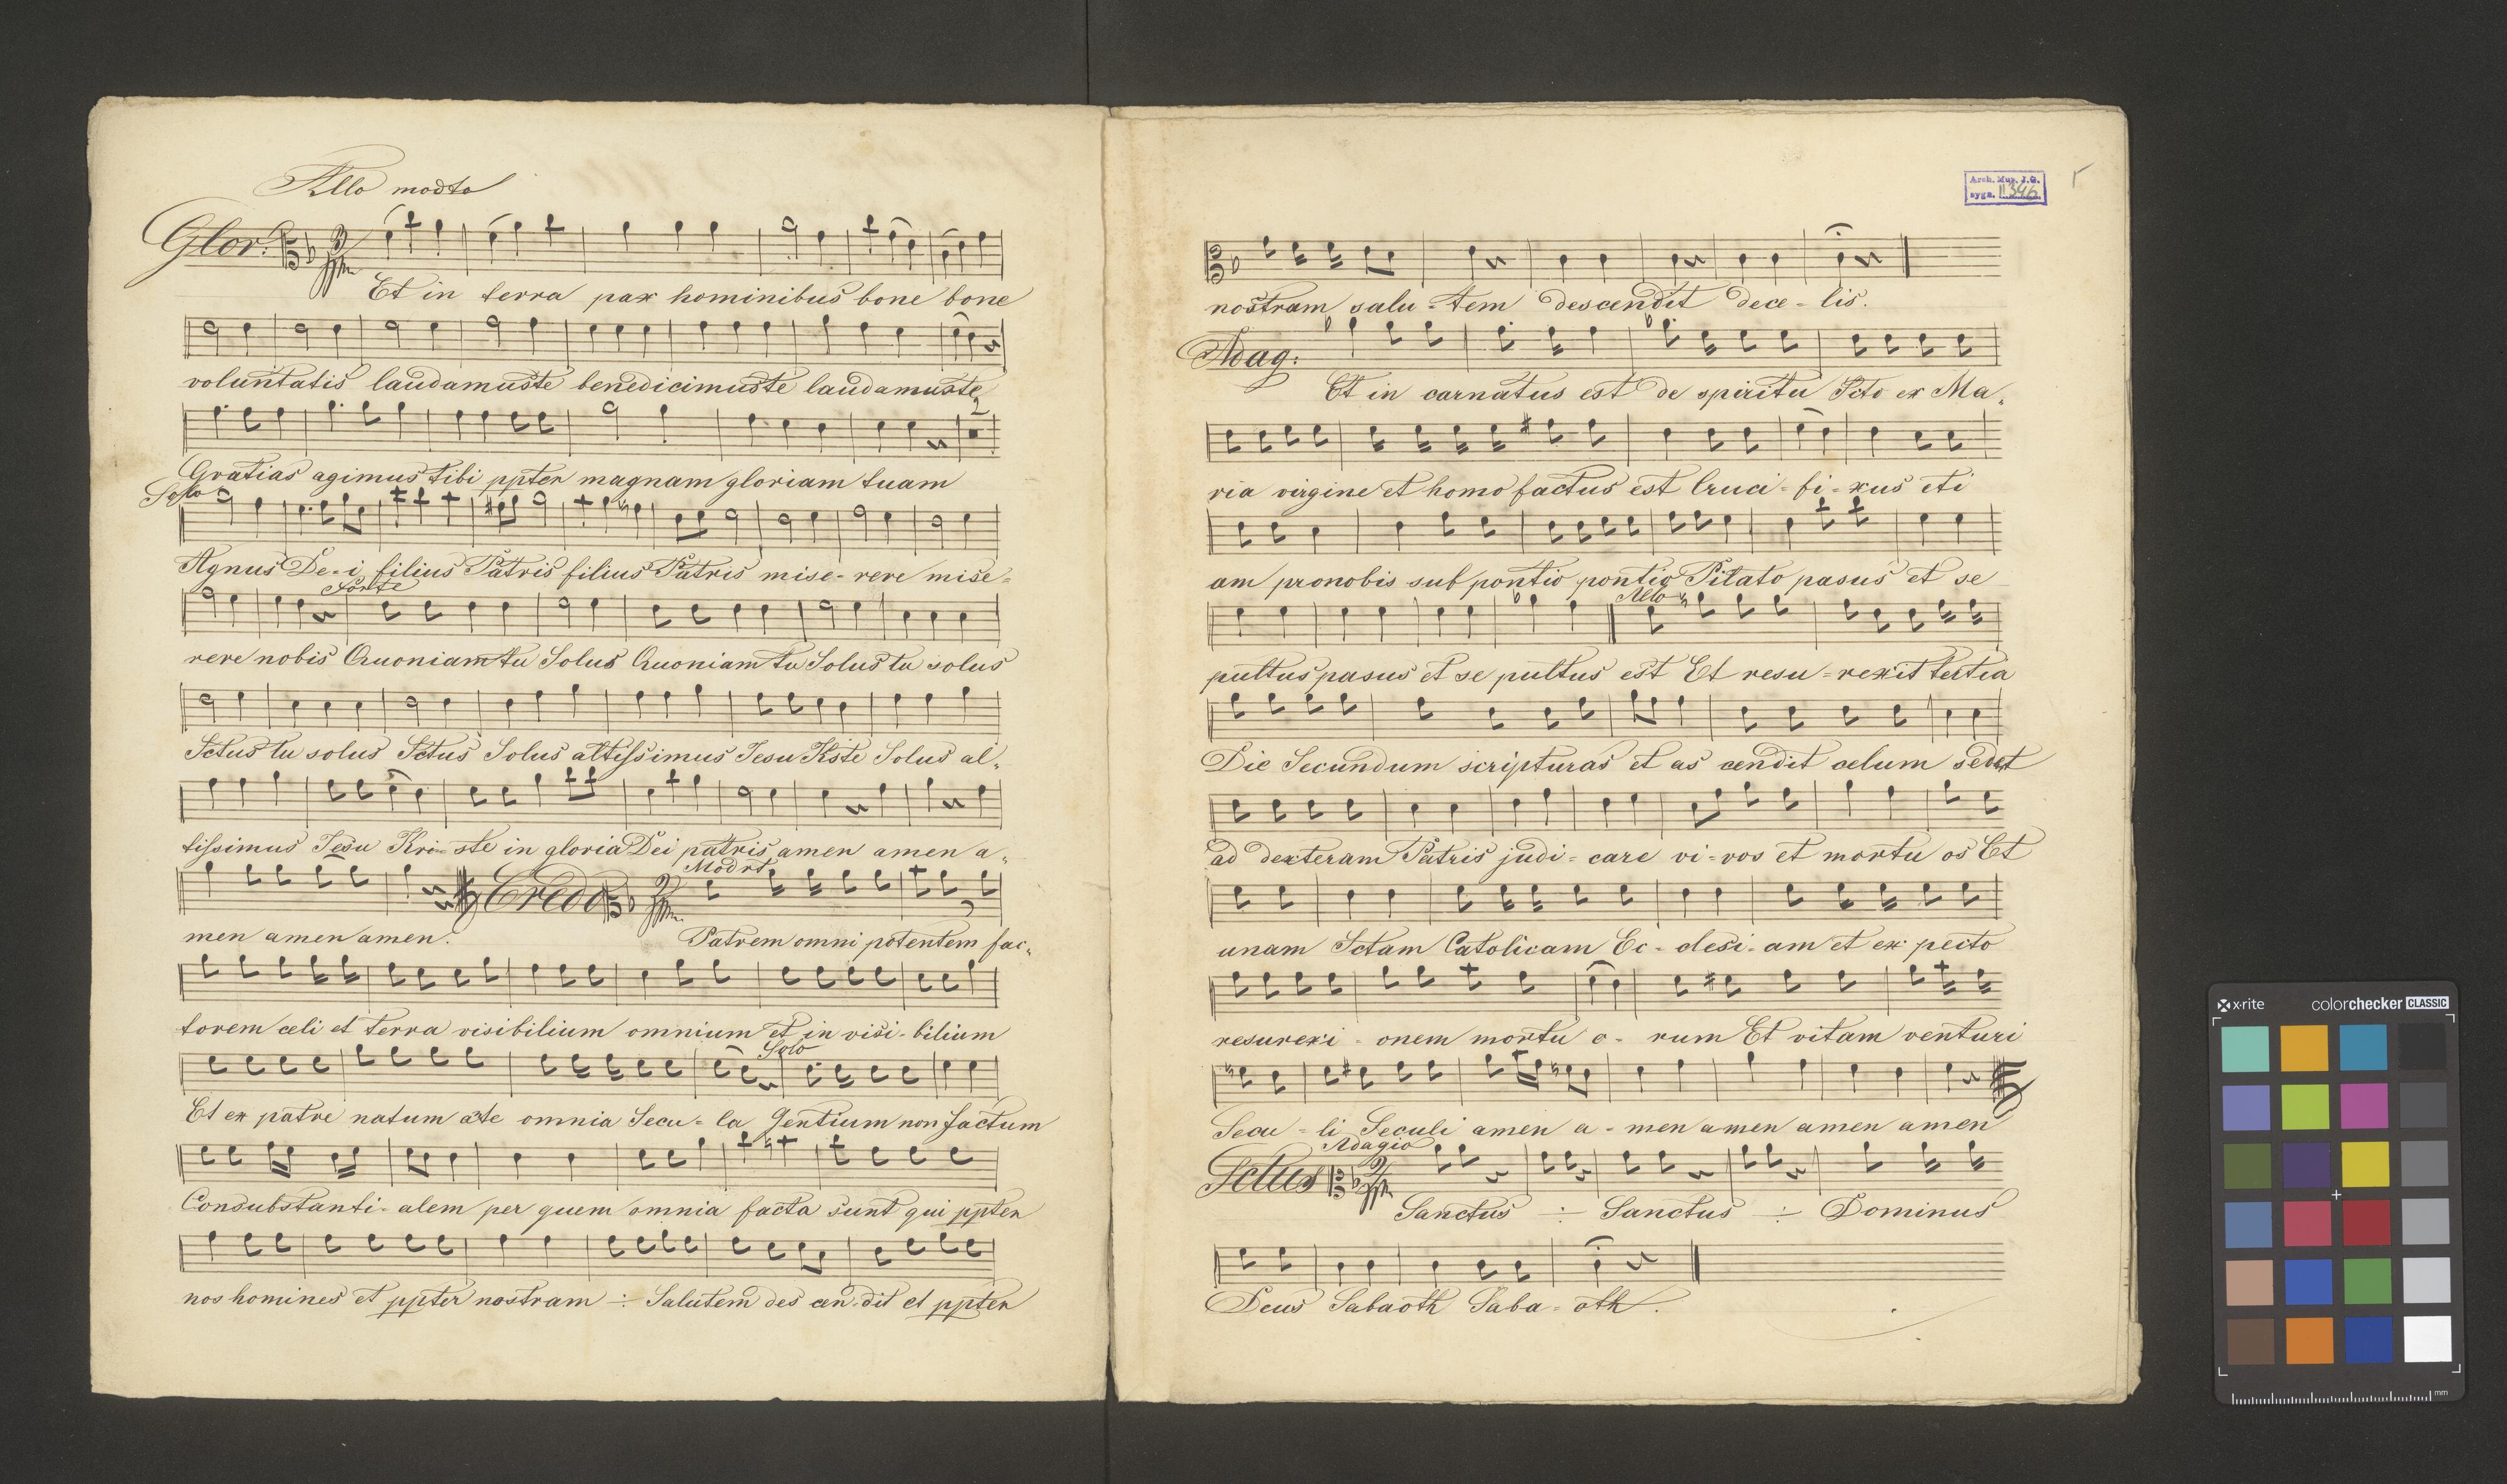 Allo modto
Glor:
Et in terra pax hominibus bone bone
voluntatis laudamuste benedicimuste laudamuste
2
Gratias agimus tibi ppter magnam gloriam tuam
Solo
Agnus De-i filius Patris filius Patris mise-rere mise-
Forte
rere nobis Quoniam tu Solus Quoniam tu Solus tu solus
Sctus tu solus Sctus Solus altissimus Jesu Kste Solus al-
tissimus Jesu Kri-ste in gloria Dei patris amen amen a-
Modrt
Credo
men amen amen. Patrem omni potentem fac-
torem celi et terra visibilium omnium et in visi-bilium
Solo
Et ex patre natum ate omnia Secu-la Gentium non factum
Consubstanti-alem per quem omnia facta sunt qui ppter
nos homines et ppter nostram ÷ Salutem des cen-dit et ppter
Arch. Muz. J.G.
sygn. II 346
nostram salu-tem descendit dece-lis.
Adag:
Et in carnatus est de spiritu Scto ex Ma-
ria virgine et homo factus est Cruci-fi-xus eti
am pronobis sub pontio pontio Pilato pasus et se
Allo
pultus pasus et se pultus est Et resu-rexit tertia
Die Secundum scripturas et as cendit celum sedet
ad dexteram Patris judi-care vi-vos et mortu os Et
unam Sctam Catolicam Ec-clesi-am et ex pecto
resurexi-onem mortu o-rum Et vitam venturi
Secu-li Seculi amen a-men amen amen amen
Adagio
Sctus
Sanctus ÷ Sanctus ÷ Dominus
Deus Sabaoth Saba-oth.
x-rite colorchecker CLASSIC
mm